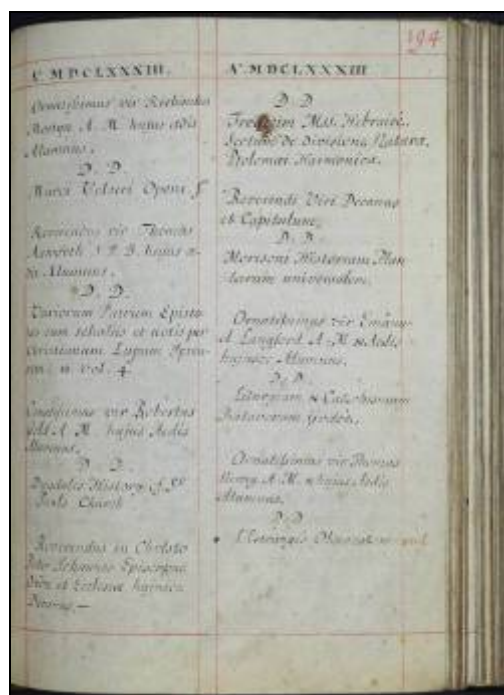 194
Aº. MDCLXXXIII.
Ornatissimus vir Richardus
A. M. hujus Ædis
Alumnus.
D. D.
Marci Velseri Opera. f.
Reverendus vir Thomas
hujus Æ-
dis Alumnus.
D. D.
Variorum Patrum Episto-
las cum scholiis et notis per
Christianum Lupum Ipren-
sem. 4
Ornatissimus vir Robertus
A. M. hujus Ædis
Alumnus.
D. D.
Dugdales History of St.
Pauls Church
Reverendus in Christo
Pater Johannes Episcopus
Oxon. et Ecclesiæ hujusce
Decanus. —
Aº. MDCLXXXIII
D. D.
MSS. Hebraice.
de Divisione Naturæ.
Ptolomæi Harmonica.
Reverendi Viri Decanus
et Capitulum,
D. D.
Morisoni Historiam Plan-
tarum universalem.
Ornatissimus vir Emanu-
el Langford A. M. Ædis
hujusce Alumnus.
D. D.
Liturgiam & Catechismum
Batavorum
Ornatissimus vir Thomas
A. M. hujus Ædis
Alumnus.
D. D
L'Estrange's